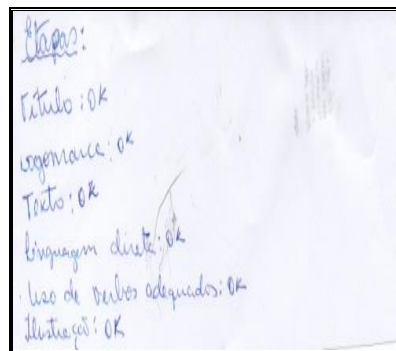 Etapas:
Título: OK
Logomarca: OK
Texto: OK
Linguagem direta: OK
Uso de verbos adequados: OK
Ilustração: OK